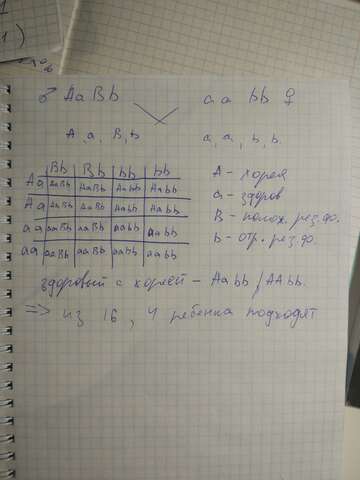 ♂ AaBb aa bb ♀
A, a, B, b a, a, b, b.
Bb Bb bb bb
Aa AaBb AaBb Aabb Aabb
Aa AaBb AaBb Aabb Aabb
aa aaBb aaBb aabb aabb
aa aaBb aaBb aabb aabb
A - хорея
a - здоров
B - полож. рез. ф.
b - отр. рез. ф.
здоровый с хореей - Aabb / AAbb.
=> из 16, 4 ребенка подходят